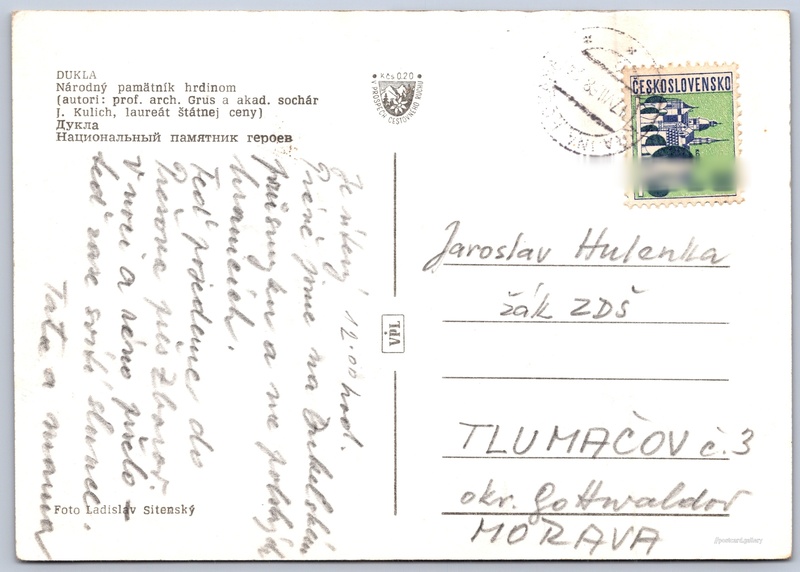 DUKLA
Národný pamätník hrdinom
(autori: prof. arch. Grus a akad. sochár
J. Kulich, laureát štátnej ceny)
Дукла
Национальный памятник героев
Kčs 0.20
PROSPĚCH CESTOVNÉHO RUCHU
ČESKOSLOVENSKO
Je úterý 12.00 hod.
Právě jsme na Dukelském
průsmyku a na polských
hranicích.
Teď pojedeme do
Prešova přes Zborov
v noci a ráno pršelo –
teď zase svítí slunce.
Táta a mama
VPL
Jaroslav Hulenka
žák ZDŠ
TLUMAČOV č. 3
okr. Gottwaldov
MORAVA
Foto Ladislav Sitenský